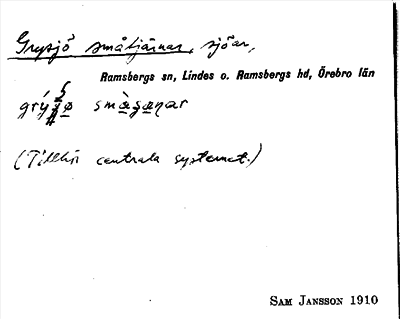 Grysjö småtjärnar, sjöar,
Ramsbergs sn, Lindes o. Ramsbergs hd, Örebro län
(Tillhör centrala systemet.)
SAM JANSSON 1910